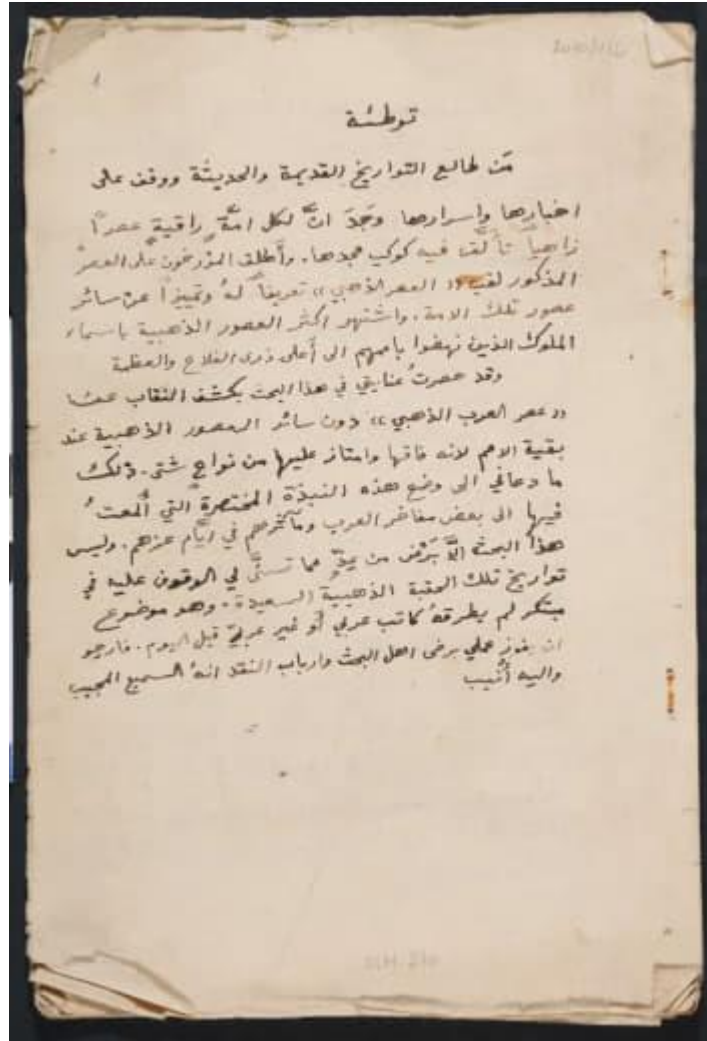 ١
توطئة
مَن طالع التواريخ القديمة والحديثة ووقف على
اخبارها واسرارها وَجَدَ انَّ لكل امَّةٍ راقيةٍ عصراً
زاهياً تأَلَّق فيه كوكب مجدها. وأَطلق المؤرخون على العصر
المذكور لقب «العصر الذهبي» تعريفاً لهُ وتمييزاً عن سائر
عصور تلك الامة. واشتهر اكثر العصور الذهبية باسماء
الملوك الذين نهضوا بامهم الى أَعلى ذرى الفلاح والعظمة
وقد حصرتُ عنايتي في هذا البحث بكشف النقاب عن
«عصر العرب الذهبي» دون سائر العصور الذهبية عند
بقية الامم لانه فاقها وامتاز عليها من نواحٍ شتى. ذلك
ما دعاني الى وضع هذه النبذة المختصرة التي أَلمعتُ
فيها الى بعض مفاخر العرب ومآثرهم في ايَّام عزهم. وليس
هذا البحث الَّا بَرَضٌ من عِدٍّ مما تسنَّى لي الوقوف عليه في
تواريخ تلك الحقبة الذهبية السعيدة. وهو موضوع
مبتكر لم يطرقهُ كاتب عربي أو غير عربيّ قبل اليوم. فارجو
ان يفوز عملي برضى اهل البحث وارباب النقد انهُ السميع المجيب
واليه أُنيب